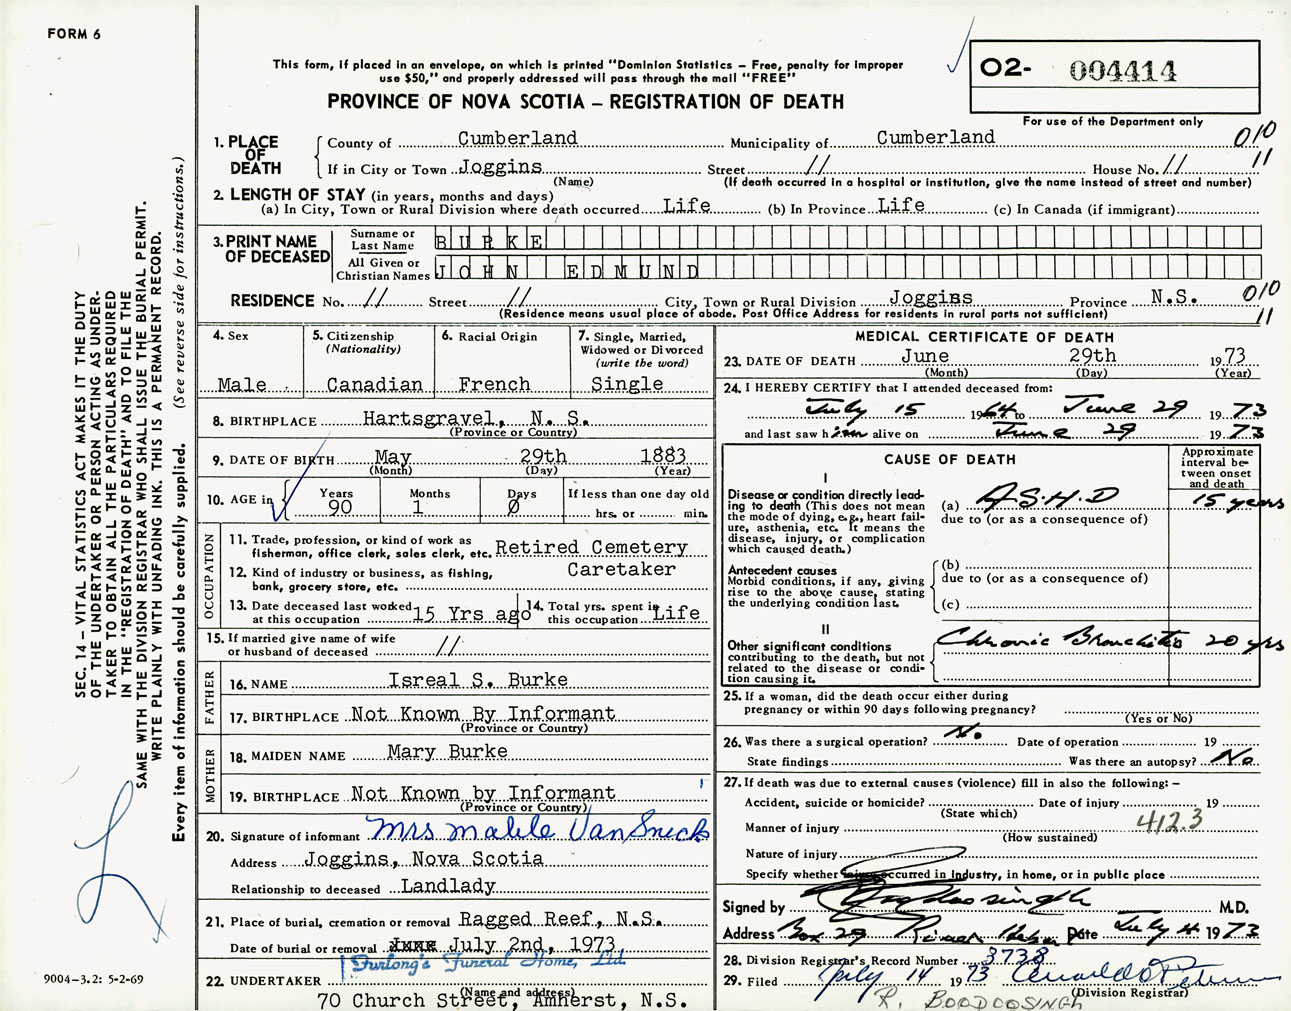 FORM 6
This form, if placed in an envelope, on which is printed "Dominion Statistics – Free, penalty for improper
use $50," and properly addressed will pass through the mail "FREE"
PROVINCE OF NOVA SCOTIA – REGISTRATION OF DEATH
O2- 004414
For use of the Department only
1. PLACE OF DEATH
County of Cumberland Municipality of Cumberland 010
If in City or Town Joggins Street // House No. // 11
(Name) (If death occurred in a hospital or institution, give the name instead of street and number)
2. LENGTH OF STAY (in years, months and days)
(a) In City, Town or Rural Division where death occurred Life (b) In Province Life (c) In Canada (if immigrant)
3. PRINT NAME OF DECEASED
Surname or Last Name BURKE
All Given or Christian Names JOHN EDMUND
RESIDENCE No. // Street // City, Town or Rural Division Joggins Province N.S. 010
(Residence means usual place of abode. Post Office Address for residents in rural parts not sufficient) 11
4. Sex
Male
5. Citizenship
(Nationality)
Canadian
6. Racial Origin
French
7. Single, Married,
Widowed or Divorced
(write the word)
Single
8. BIRTHPLACE Hartsgravel, N. S.
(Province or Country)
9. DATE OF BIRTH May 29th 1883
(Month) (Day) (Year)
10. AGE in Years Months Days If less than one day old
90 1 0 hrs. or min.
OCCUPATION
11. Trade, profession, or kind of work as
fisherman, office clerk, sales clerk, etc. Retired Cemetery
12. Kind of industry or business, as fishing, Caretaker
bank, grocery store, etc.
13. Date deceased last worked
at this occupation 15 Yrs ago
14. Total yrs. spent in
this occupation Life
15. If married give name of wife
or husband of deceased //
FATHER
16. NAME Isreal S. Burke
17. BIRTHPLACE Not Known By Informant
(Province or Country)
MOTHER
18. MAIDEN NAME Mary Burke
19. BIRTHPLACE Not Known by Informant
(Province or Country)
20. Signature of informant Mrs Mable VanSnick
Address Joggins, Nova Scotia
Relationship to deceased Landlady
21. Place of burial, cremation or removal Ragged Reef, N.S.
Date of burial or removal July 2nd, 1973
Furlong's Funeral Home, Ltd.
22. UNDERTAKER
(Name and address)
70 Church Street, Amherst, N.S.
MEDICAL CERTIFICATE OF DEATH
23. DATE OF DEATH June 29th 1973
(Month) (Day) (Year)
24. I HEREBY CERTIFY that I attended deceased from:
July 15 1964 to June 29 1973
and last saw him alive on June 29 1973
CAUSE OF DEATH
Approximate
interval be-
tween onset
and death
I
Disease or condition directly lead-
ing to death (This does not mean
the mode of dying, e.g., heart fail-
ure, asthenia, etc. It means the
disease, injury, or complication
which caused death.)
(a) A.S.H.D 15 years
due to (or as a consequence of)
Antecedent causes
Morbid conditions, if any, giving
rise to the above cause, stating
the underlying condition last.
(b)
due to (or as a consequence of)
(c)
II
Other significant conditions
contributing to the death, but not
related to the disease or condi-
tion causing it.
Chronic Bronchitis 20 yrs
25. If a woman, did the death occur either during
pregnancy or within 90 days following pregnancy?
(Yes or No)
26. Was there a surgical operation? No. Date of operation 19
State findings Was there an autopsy? No
27. If death was due to external causes (violence) fill in also the following: –
Accident, suicide or homicide? Date of injury 19
(State which)
Manner of injury 412.3
(How sustained)
Nature of injury
Specify whether injury occurred in industry, in home, or in public place
Signed by Boodoosingh M.D.
Address Box 29 River Hebert Date July 4 1973
28. Division Registrar's Record Number 3738
29. Filed July 14 1973
(Division Registrar)
R. BOODOOSINGH
SEC. 14 – VITAL STATISTICS ACT MAKES IT THE DUTY
OF THE UNDERTAKER OR PERSON ACTING AS UNDER-
TAKER TO OBTAIN ALL THE PARTICULARS REQUIRED
IN THE "REGISTRATION OF DEATH" AND TO FILE THE
SAME WITH THE DIVISION REGISTRAR WHO SHALL ISSUE THE BURIAL PERMIT.
WRITE PLAINLY WITH UNFADING INK. THIS IS A PERMANENT RECORD.
Every item of information should be carefully supplied. (See reverse side for instructions.)
9004–3.2: 5-2-69